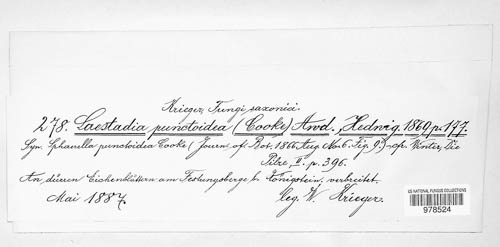 Krieger, Fungi saxonici.
278. Laestadia punctoidea (Cooke) Awd., Hedwig. 1869, p. 177.
Syn. Sphaerella punctoidea Cooke (Journ. of Bot. 1866 Aug. No. 6. Fig. 9.) cfr. Winter, Die
Pilze, II. p. 396.
An dürren Eichenblättern am Festungsberge b. Königstein verbreitet.
Mai 1887. leg. W. Krieger.
US NATIONAL FUNGUS COLLECTIONS
978524